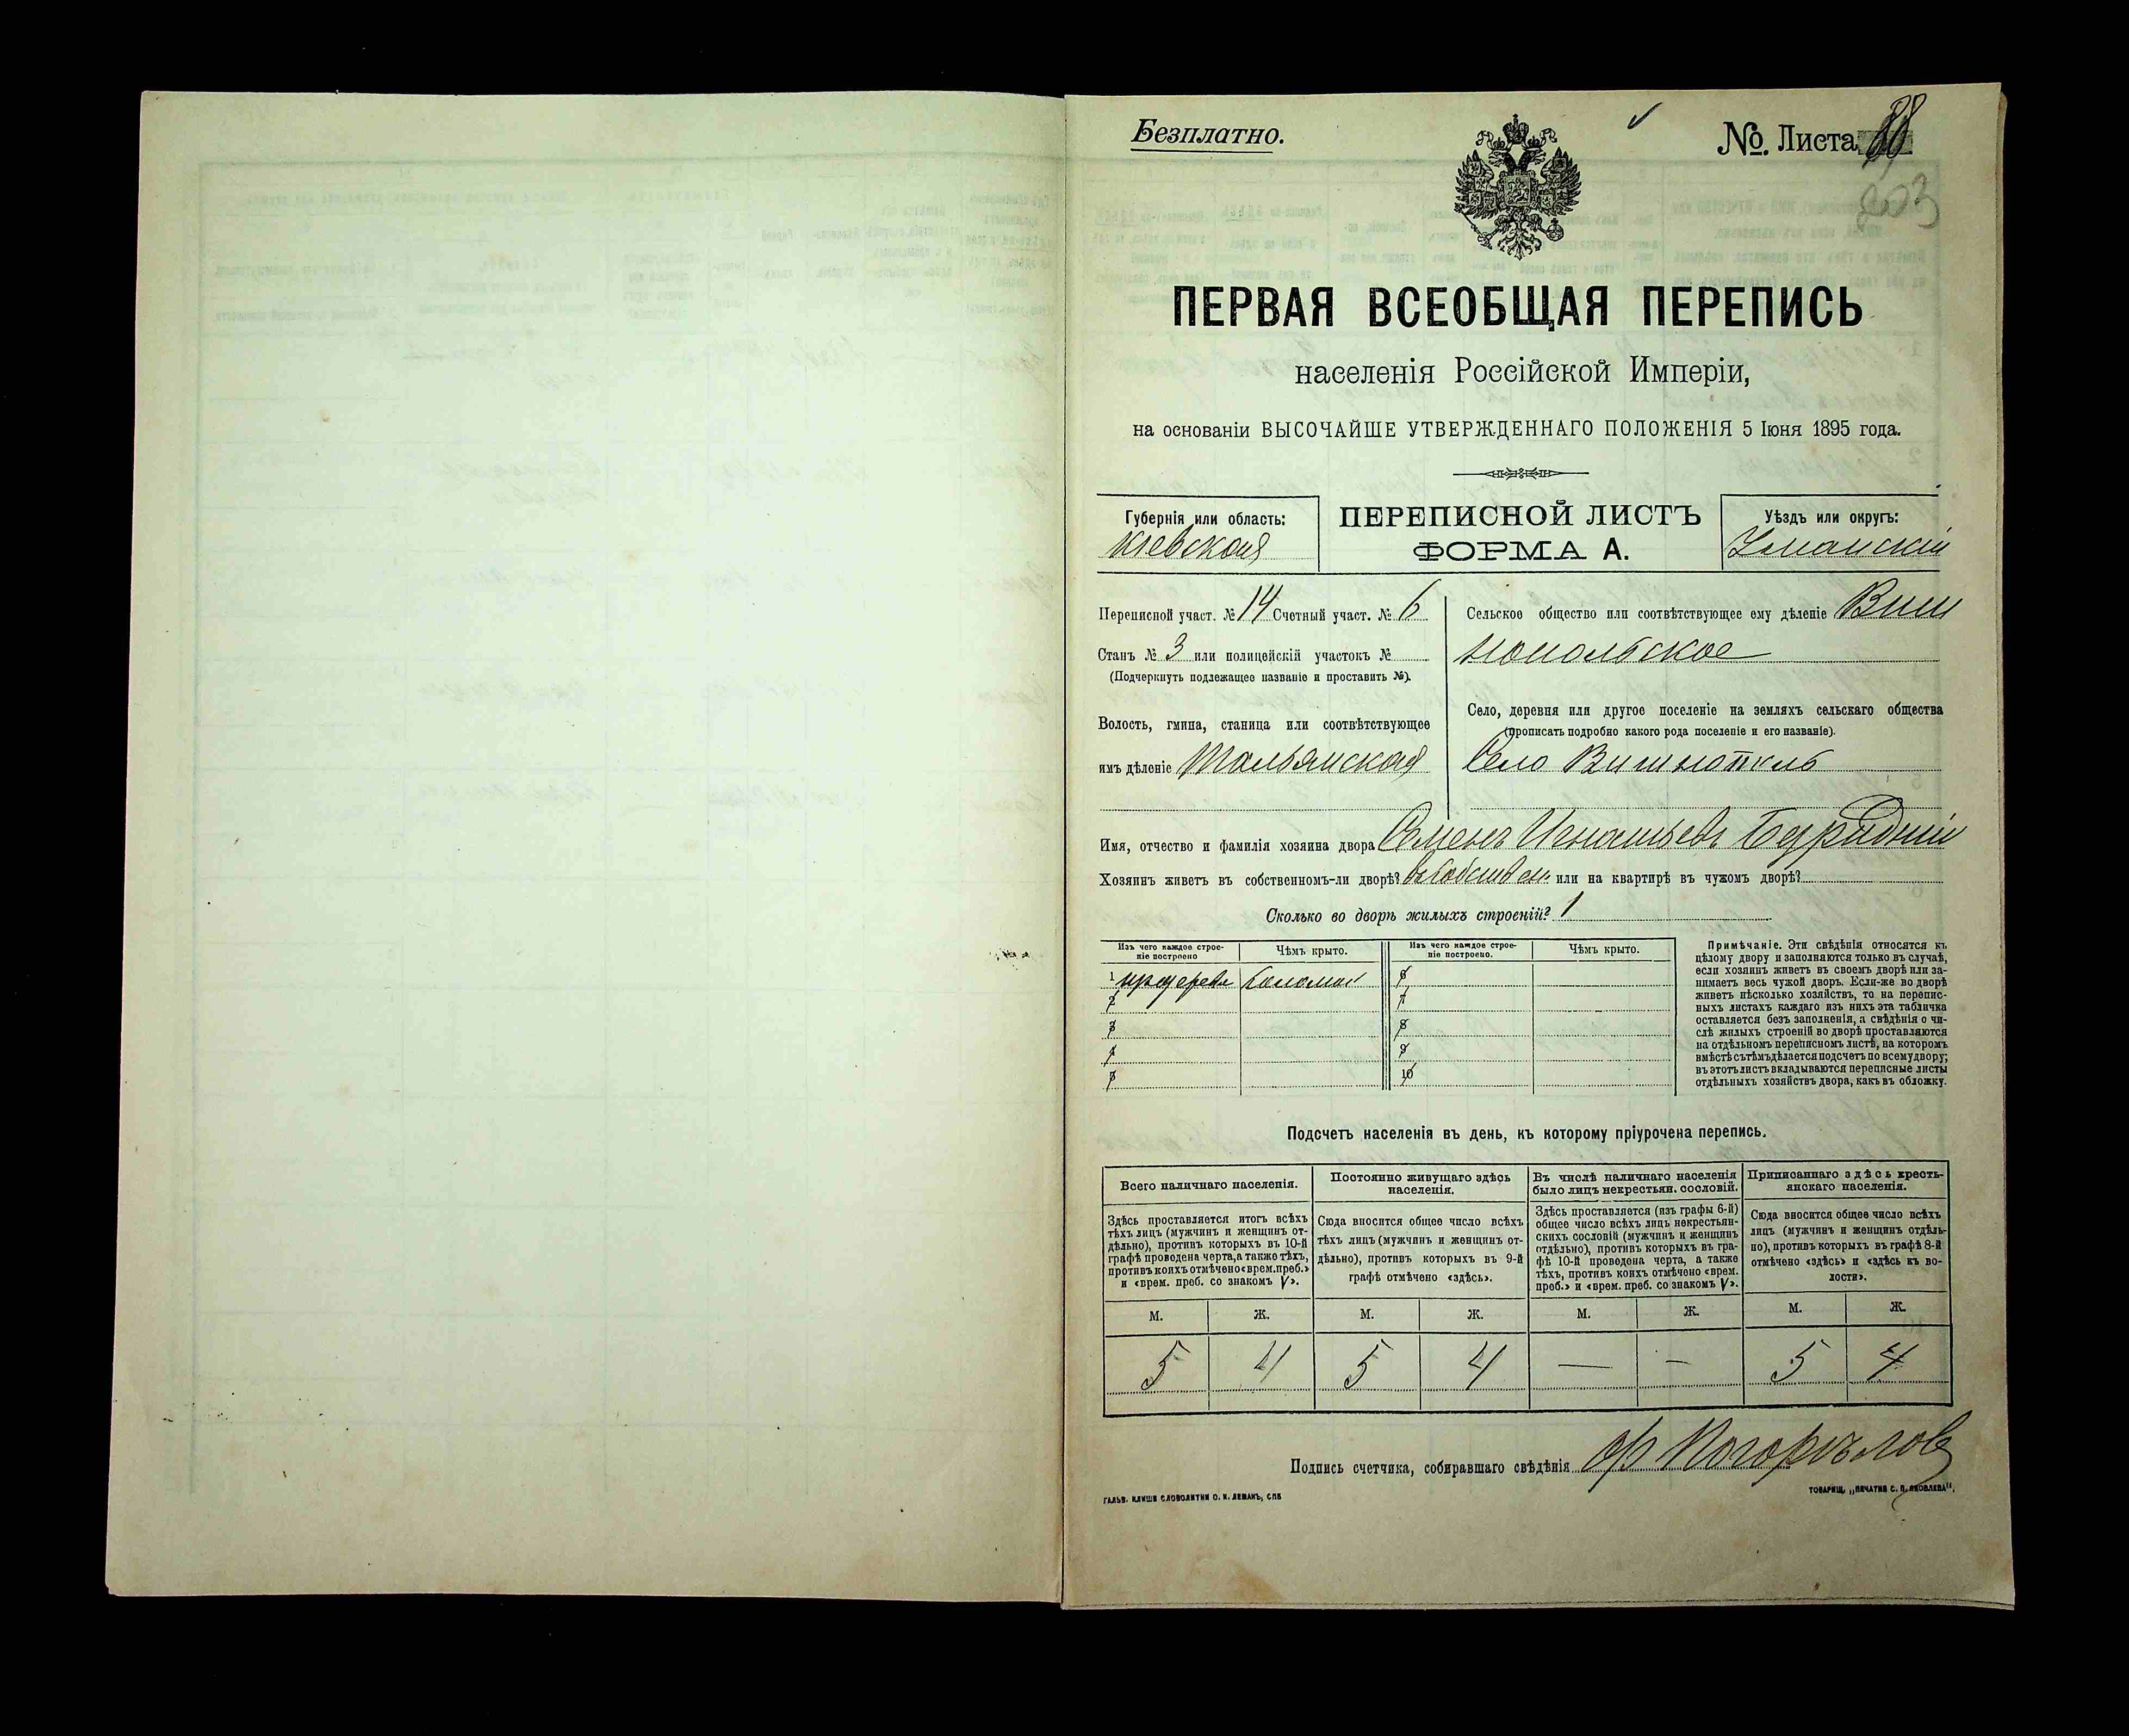 Безплатно.
№. Листа 88
203
ПЕРВАЯ ВСЕОБЩАЯ ПЕРЕПИСЬ
населенія Россійской Имперіи,
на основаніи ВЫСОЧАЙШЕ УТВЕРЖДЕННАГО ПОЛОЖЕНІЯ 5 Іюня 1895 года.
Губернія или область:
Кіевская
ПЕРЕПИСНОЙ ЛИСТЪ
ФОРМА А.
Уѣздъ или округъ:
Уманскій
Переписной участ. № 14 Счетный участ. № 6
Станъ № 3 или полицейскій участокъ №
(Подчеркнуть подлежащее названіе и проставить №).
Волость, гмина, станица или соотвѣтствующее
имъ дѣленіе Тальянская
Сельское общество или соотвѣтствующее ему дѣленіе Виш
нопольское
Село, деревня или другое поселеніе на земляхъ сельскаго общества
(прописать подробно какого рода поселеніе и его названіе).
Село Вишнополь
Имя, отчество и фамилія хозяина двора Семенъ Игнатьевъ
Хозяинъ живетъ въ собственномъ-ли дворѣ? въ собствен. или на квартирѣ въ чужомъ дворѣ?
Сколько во дворѣ жилыхъ строеній? 1
Изъ чего каждое строе-
ніе построено
Чѣмъ крыто.
Изъ чего каждое строе-
ніе построено.
Чѣмъ крыто.
1 соломой 6
2 7
3 8
4 9
5 10
Примѣчаніе. Эти свѣдѣнія относятся къ
цѣлому двору и заполняются только въ случаѣ,
если хозяинъ живетъ въ своемъ дворѣ или за-
нимаетъ весь чужой дворъ. Если-же во дворѣ
живетъ нѣсколько хозяйствъ, то на перепис-
ныхъ листахъ каждаго изъ нихъ эта табличка
оставляется безъ заполненія, а свѣдѣнія о чи-
слѣ жилыхъ строеній во дворѣ проставляются
на отдѣльномъ переписномъ листѣ, на которомъ
вмѣстѣ съ тѣмъ дѣлается подсчетъ по всему двору;
въ этотъ листъ вкладываются переписные листы
отдѣльныхъ хозяйствъ двора, какъ въ обложку.
Подсчетъ населенія въ день, къ которому пріурочена перепись.
Всего наличнаго населенія.
Здѣсь проставляется итогъ всѣхъ
тѣхъ лицъ (мужчинъ и женщинъ от-
дѣльно), противъ которыхъ въ 10-й
графѣ проведена черта, а также тѣхъ,
противъ коихъ отмѣчено «врем. преб.»
и «врем. преб. со знакомъ V».
Постоянно живущаго здѣсь
населенія.
Сюда вносится общее число всѣхъ
тѣхъ лицъ (мужчинъ и женщинъ от-
дѣльно), противъ которыхъ въ 9-й
графѣ отмѣчено «здѣсь».
Въ числѣ наличнаго населенія
было лицъ некрестьян. сословій.
Здѣсь проставляется (изъ графы 6-й)
общее число всѣхъ лицъ некрестьян-
скихъ сословій (мужчинъ и женщинъ
отдѣльно), противъ которыхъ въ гра-
фѣ 10-й проведена черта, а также
тѣхъ, противъ коихъ отмѣчено «врем.
преб.» и «врем. преб. со знакомъ V».
Приписаннаго здѣсь кресть-
янскаго населенія.
Сюда вносится общее число всѣхъ
лицъ (мужчинъ и женщинъ отдѣль-
но), противъ которыхъ въ графѣ 8-й
отмѣчено «здѣсь» и «здѣсь къ во-
лости».
М. Ж. М. Ж. М. Ж. М. Ж.
5 4 5 4 — - 5 4
Подпись счетчика, собиравшаго свѣдѣнія Погорѣловъ
ГАЛЬВ. КЛИШЕ СЛОВОЛИТНИ О. И. ЛЕМАНЪ, СПБ
ТОВАРИЩ. „ПЕЧАТНЯ С. П. ЯКОВЛЕВА".